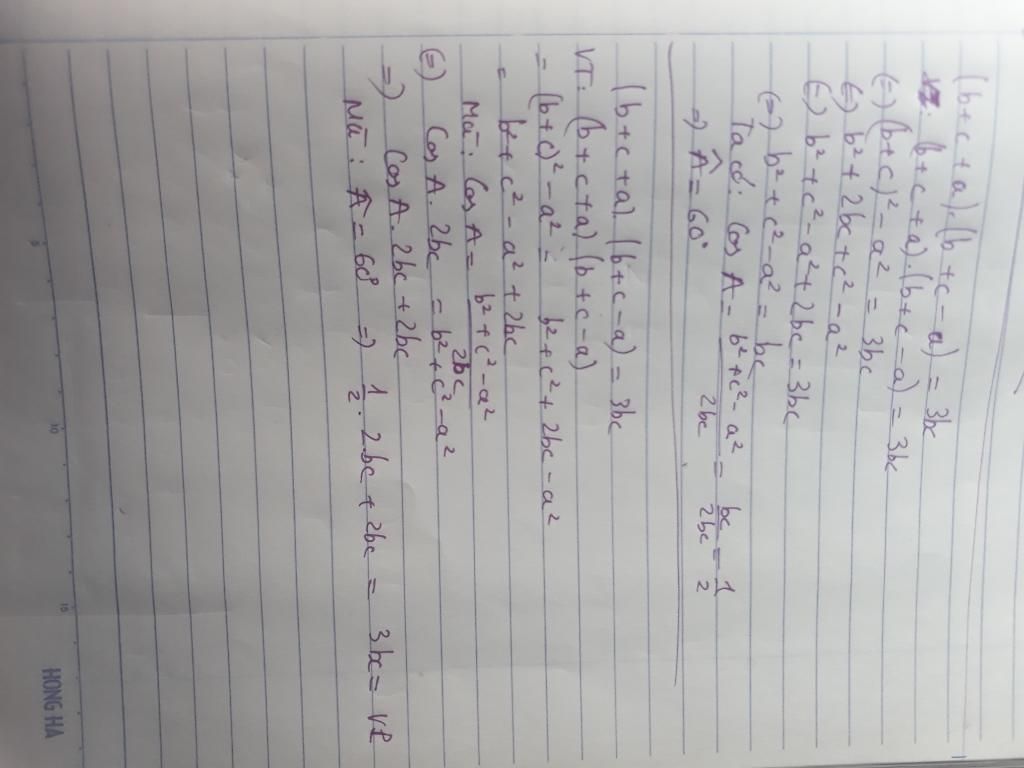 (b+c+a).(b+c-a) = 3bc
VT: (b+c+a).(b+c-a) = 3bc
(=) (b+c)² - a² = 3bc
(=) b² + 2bc + c² - a²
(=) b² + c² - a² + 2bc = 3bc
(=) b² + c² - a² = bc
Ta có: Cos A = \frac{b² + c² - a²}{2bc} = \frac{bc}{2bc} = \frac{1}{2}
=) Â = 60°
(b+c+a).(b+c-a) = 3bc
VT: (b+c+a)(b+c-a)
= (b+c)² - a² = b² + c² + 2bc - a²
= b² + c² - a² + 2bc
Mà: Cos A = \frac{b² + c² - a²}{2bc}
(=) Cos A . 2bc = b² + c² - a²
=) Cos A . 2bc + 2bc
Mà: Â = 60° =) \frac{1}{2} . 2bc + 2bc = 3bc = VP
5
10
15
HONG HA